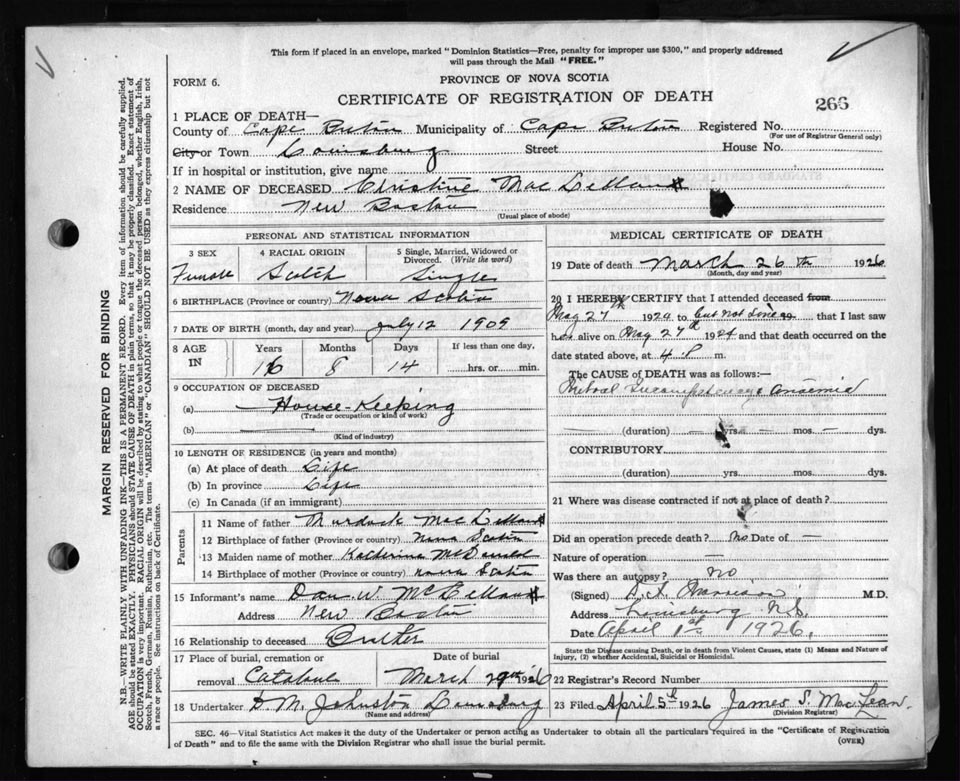 This form if placed in an envelope, marked "Dominion Statistics—Free, penalty for improper use $300," and properly addressed
will pass through the Mail "FREE."
FORM 6.
PROVINCE OF NOVA SCOTIA
CERTIFICATE OF REGISTRATION OF DEATH
266
1 PLACE OF DEATH—
County of Cape Breton Municipality of Cape Breton Registered No.
(For use of Registrar General only)
City or Town Louisburg Street House No.
If in hospital or institution, give name
2 NAME OF DECEASED Christine MacLellan
Residence New Boston
(Usual place of abode)
PERSONAL AND STATISTICAL INFORMATION
3 SEX
Female
4 RACIAL ORIGIN
Scotch
5 Single, Married, Widowed or
Divorced. (Write the word)
Single
6 BIRTHPLACE (Province or country) Nova Scotia
7 DATE OF BIRTH (month, day and year) July 12 1909
8 AGE
IN
Years
16
Months
8
Days
14
If less than one day,
hrs. or min.
9 OCCUPATION OF DECEASED
(a) House-Keeping
(Trade or occupation or kind of work)
(b)
(Kind of industry)
10 LENGTH OF RESIDENCE (in years and months)
(a) At place of death Life
(b) In province Life
(c) In Canada (if an immigrant)
Parents
11 Name of father Murdock MacLellan
12 Birthplace of father (Province or country) Nova Scotia
13 Maiden name of mother Katherine McDonald
14 Birthplace of mother (Province or country) Nova Scotia
15 Informant's name Dan. W. McLellan
Address New Boston
16 Relationship to deceased Brother
17 Place of burial, cremation or
removal Catalone
Date of burial
March 29th 1926
18 Undertaker H. M. Johnston Louisburg
(Name and address)
MEDICAL CERTIFICATE OF DEATH
19 Date of death March 26th 1926
(Month, day and year)
20 I HEREBY CERTIFY that I attended deceased from
May 27th 1924 to but not since 19 that I last saw
her alive on May 27th 1924 and that death occurred on the
date stated above, at 4 P m.
The CAUSE OF DEATH was as follows:—
Mitral Anaemia
(duration) yrs. mos. dys.
CONTRIBUTORY
(duration) yrs. mos. dys.
21 Where was disease contracted if not at place of death?
Did an operation precede death? No Date of —
Nature of operation —
Was there an autopsy? no
(Signed) M.D.
Address Louisburg N.S.
Date April 1st 1926.
State the Disease causing Death, or in death from Violent Causes, state (1) Means and Nature of
Injury, (2) whether Accidental, Suicidal or Homicidal.
22 Registrar's Record Number
23 Filed April 5th 1926 James S. MacLean.
(Division Registrar)
SEC. 46—Vital Statistics Act makes it the duty of the Undertaker or person acting as Undertaker to obtain all the particulars required in the "Certificate of Registration
of Death" and to file the same with the Division Registrar who shall issue the burial permit.
(OVER)
MARGIN RESERVED FOR BINDING
N.B.—WRITE PLAINLY WITH UNFADING INK—THIS IS A PERMANENT RECORD. Every item of information should be carefully supplied.
AGE should be stated EXACTLY. PHYSICIANS should STATE CAUSE OF DEATH in plain terms, so that it may be properly classified. Exact statement of
OCCUPATION is very important. RACIAL ORIGIN will be described by stating to what people or tongue the deceased person belonged, whether English, Irish,
Scotch, French, German, Russian, Ruthenian, etc. The terms "AMERICAN" or "CANADIAN" SHOULD NOT BE USED as they express citizenship but not
a race or people. See instructions on back of Certificate.